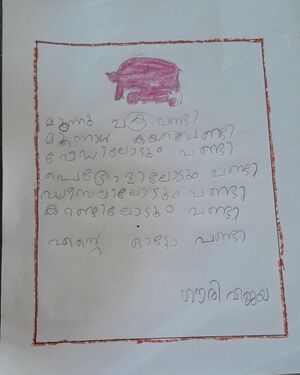 മൂന്നു ചക്ര വണ്ടി
മൂന്നാൾ കയറും വണ്ടി
റോഡിലോടും വണ്ടി
പെട്രോളിലോടും വണ്ടി
ഡീസലിലോടും വണ്ടി
കറണ്ടിലോടും വണ്ടി
എന്റെ ഓട്ടോ വണ്ടി
ഗൗരി വിജയ